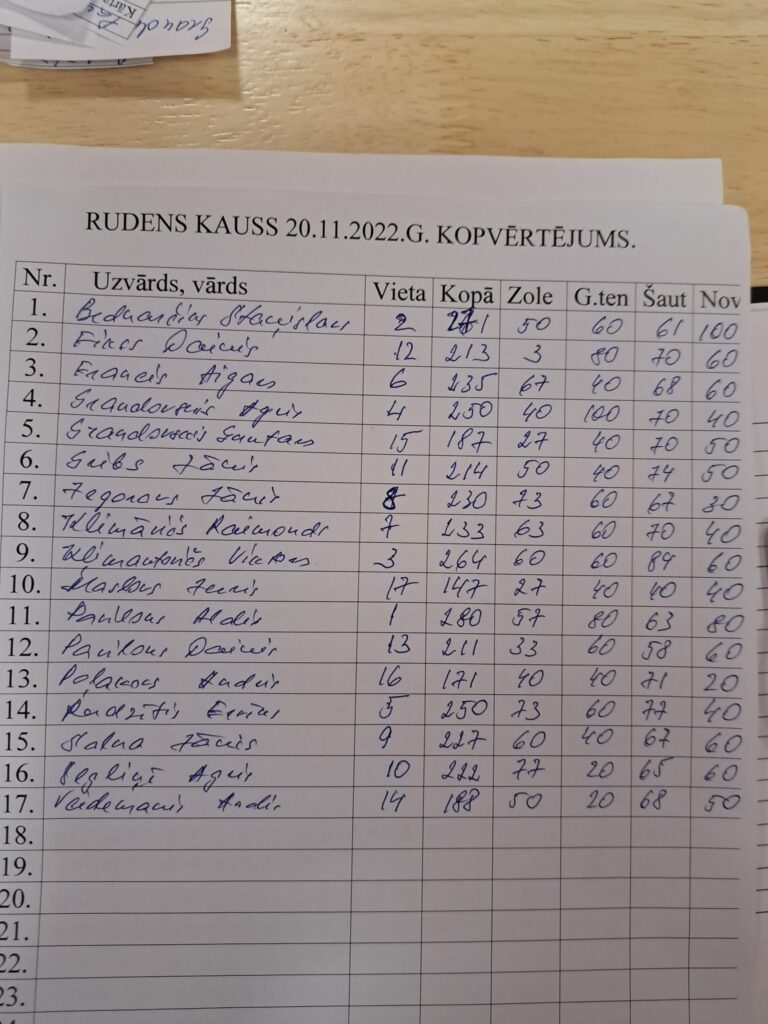 RUDENS KAUSS 20.11.2022.G. KOPVĒRTĒJUMS.
Nr. Uzvārds, vārds Vieta Kopā Zole G.ten Šaut Nov
1. Staņislavs 2 271 50 60 61 100
2. Dainis 12 213 3 80 70 60
3. Francis Aigars 6 235 67 40 68 60
4. Grandovskis Agris 4 250 40 100 70 40
5. Grandovskis Guntars 15 187 27 40 70 50
6. Grībs Jānis 11 214 50 40 74 50
7. Jegorovs Jānis 8 230 73 60 67 30
8. Klimānovs Raimonds 7 233 63 60 70 40
9. Klimantovičs Viktors 3 264 60 60 84 60
10. Maslovs 17 147 27 40 40 40
11. Pavilons Aldis 1 280 57 80 63 80
12. Pavilons Dainis 13 211 33 60 58 60
13. Poļakovs Andris 16 171 40 40 71 20
14. Rudzītis 5 250 73 60 77 40
15. Jānis 9 227 60 40 67 60
16. Segliņi Agris 10 222 77 20 65 60
17. Veidemanis Andis 14 188 50 20 68 50
18.
19.
20.
21.
22.
23.